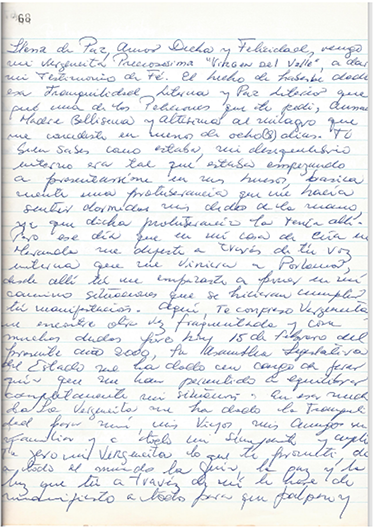 66
Llena de Paz, Amor Dicha y Felicidad, vengo
mi Vergencita Preciosísima "Virgen del Valle", a dar
mi Testimonio de Fé. El hecho de haberme dado
esa tranquilidad Interna y Paz Interior que
fué una de las Peticiones que te pedí,
Madre Bellísima y Altísima al milagro que
me concediste en menos de ocho(8) días. Tú
bien sabes como estaba, mi desequilibrio
interno era tal que, estaba empezando
a presentarse en mis huesos, básica
mente una protuberancia que me hacía
sentir dormidos mis dedos de la mano
ya que dicha protuberancia la tenía allí.
Pero ese día que en mi casa de
me desperté a través de tu voz
interna que me viniera a Porlamar,
desde allí tú me empezaste a poner en mi
camino situaciones que se hicieron
tú manifestación. Aquí, Te confieso Vergencita
me encontré otra vez fragmentada y con
muchas dudas pero hoy 15 de Febrero del
presente año 2009, la Asamblea Legislativa
del Estado me ha dado un campo de
que me han permitido a equilibrar
completamente mi
La Vergencita me ha dado la Tranquili
dad para mí mis Viejos mis Amigos mi
familia y a todo mi
pero mi Vergencita lo que te prometí de
a todo el mundo la y la paz y la
luz que tú a través de mí le hace de
manifiesto a todo para que y